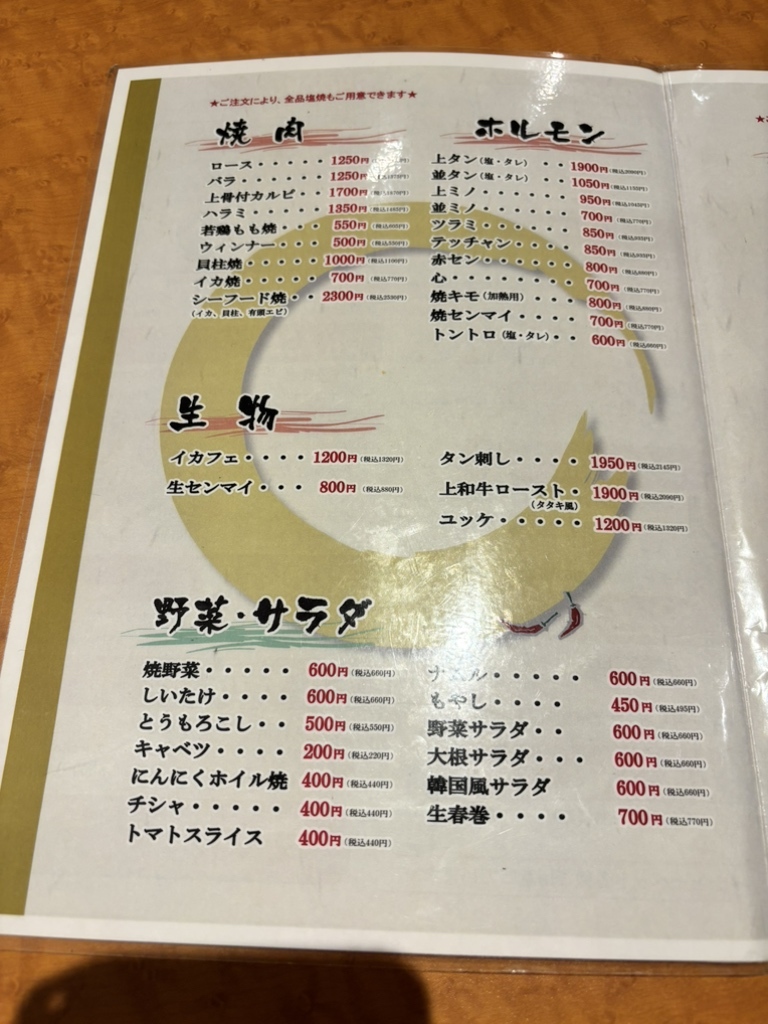 ★ご注文により、全品塩焼もご用意できます★
焼肉
ロース・・・・・ 1250円
バラ・・・・・・ 1250円
上骨付カルビ・・ 1700円
ハラミ・・・・・ 1350円(税込1485円)
若鶏もも焼・・・ 550円(税込605円)
ウィンナー・・・ 500円(税込550円)
貝柱焼・・・・ 1000円(税込1100円)
イカ焼・・・・・ 700円(税込770円)
シーフード焼・・ 2300円(税込2530円)
(イカ、貝柱、有頭エビ)
ホルモン
上タン(塩・タレ)・・ 1900円(税込2090円)
並タン(塩・タレ)・・ 1050円(税込1155円)
上ミノ・・・・・・ 950円(税込1045円)
並ミノ・・・・・・ 700円(税込770円)
ツラミ・・・・・・ 850円(税込935円)
テッチャン・・・・ 850円(税込935円)
赤セン・・・・・・ 800円(税込880円)
心・・・・・・・・ 700円(税込770円)
焼キモ(加熱用)・・・ 800円(税込880円)
焼センマイ・・・・ 700円(税込770円)
トントロ(塩・タレ)・・ 600円(税込660円)
生物
イカフェ・・・・ 1200円(税込1320円)
生センマイ・・・ 800円(税込880円)
タン刺し・・・・ 1950円(税込2145円)
上和牛ロースト・ 1900円(税込2090円)
(タタキ風)
ユッケ・・・・・ 1200円(税込1320円)
野菜・サラダ
焼野菜・・・・・ 600円(税込660円)
しいたけ・・・・ 600円(税込660円)
とうもろこし・・ 500円(税込550円)
キャベツ・・・・ 200円(税込220円)
にんにくホイル焼 400円(税込440円)
チシャ・・・・・ 400円(税込440円)
トマトスライス 400円(税込440円)
ナムル・・・・・ 600円(税込660円)
もやし・・・・ 450円(税込495円)
野菜サラダ・・ 600円(税込660円)
大根サラダ・・・ 600円(税込660円)
韓国風サラダ 600円(税込660円)
生春巻・・・・ 700円(税込770円)